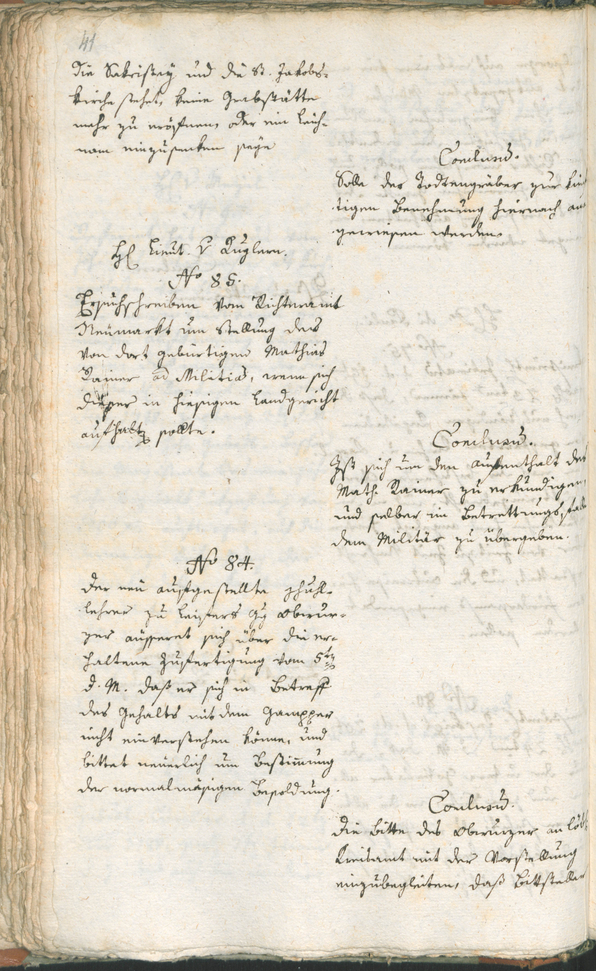 41
die Sakristey und die St. Jakobs-
kirche stehet, keine Grabstätte
mehr zu eröfnen, oder ein Leich-
nam einzusenken seye
Conclusum.
Solle der Todtengräber zur künf
tigen Benehmung hiernach an
gewiesen werden.
H. Lieut. v Kuglern.
No 85.
Ersuchschreiben vom Richteramt
Neumarkt um Stellung des
von dort gebürtigen Mathias
Rainer ad Militiam, wenn sich
dieser in hiesigen Landgericht
aufhalten sollte.
Conclusum.
Ist sich um den Aufenthalt des
Math. Rainer zu erkundigen,
und selber in Betrettungsfall
dem Militär zu übergeben.
No 84.
Der neu aufgestellte Schul-
lehrer zu Leifers Oberur-
zer äusseret sich über die er-
haltene Zufertigung vom 5ten
d. M. daß er sich in Betreff
des Gehalts mit dem Gampper
nicht einverstehen könne, und
bittet neuerlich um Bestimung
der normalmäsigen Besoldung.
Conclusum.
Die Bitte des Oberurzer an löb.
Kreisamt mit der Vorstellung
einzubegleiten, daß Bittsteller